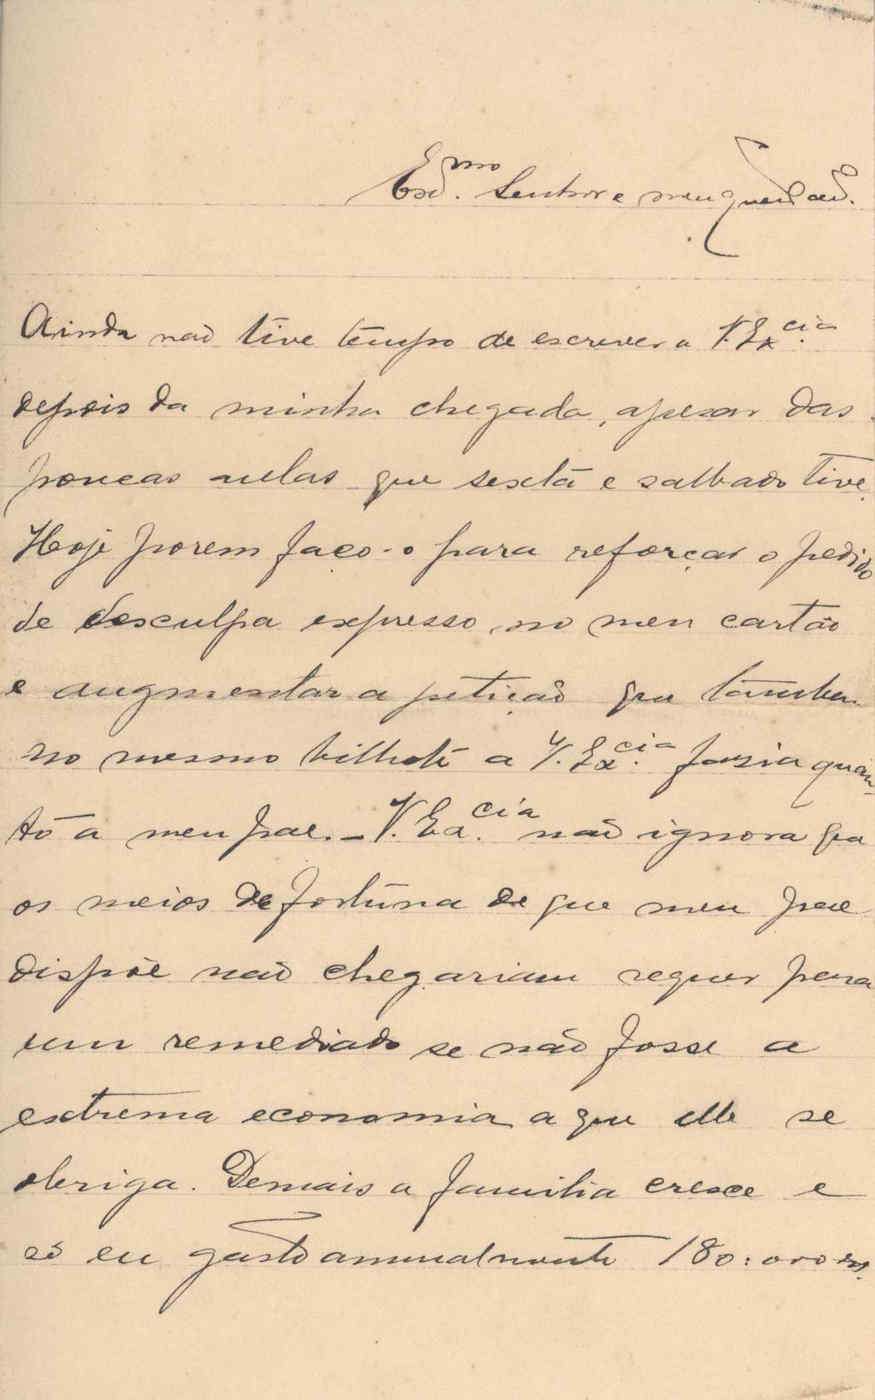 Exmo. Senhor e meu
Ainda não tive tempo de escrever a V. Excia.
depois da minha chegada, apesar das
poucas aulas que sexta e sabbado tive.
Hoje porem faço-o para reforçar o pedido
de desculpa expresso no meu cartão
e augmentar a petição que tambem
no mesmo bilhete a V. Excia. fazia quan-
to a meu pae. – V. Excia. não ignora que
os meios de fortuna de que meu pae
dispõe não chegariam sequer para
um remediado se não fosse a
extrema economia a que elle se
obriga. Demais a familia cresce e
só eu gasto annualmente 180:000 rs.